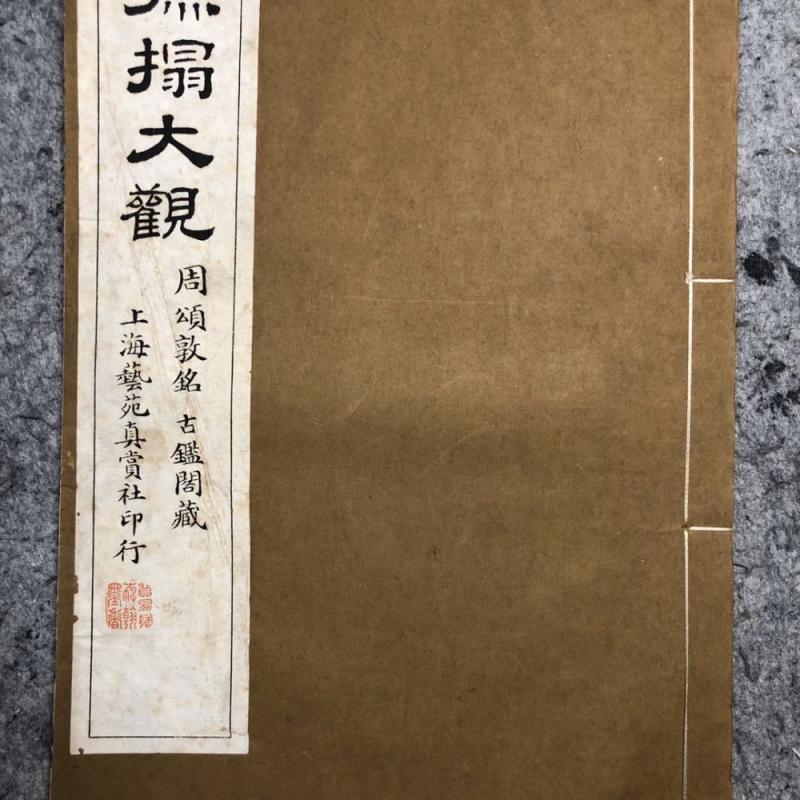 搨大觀
周頌敦銘 古鑑閣藏
上海藝苑真賞社印行